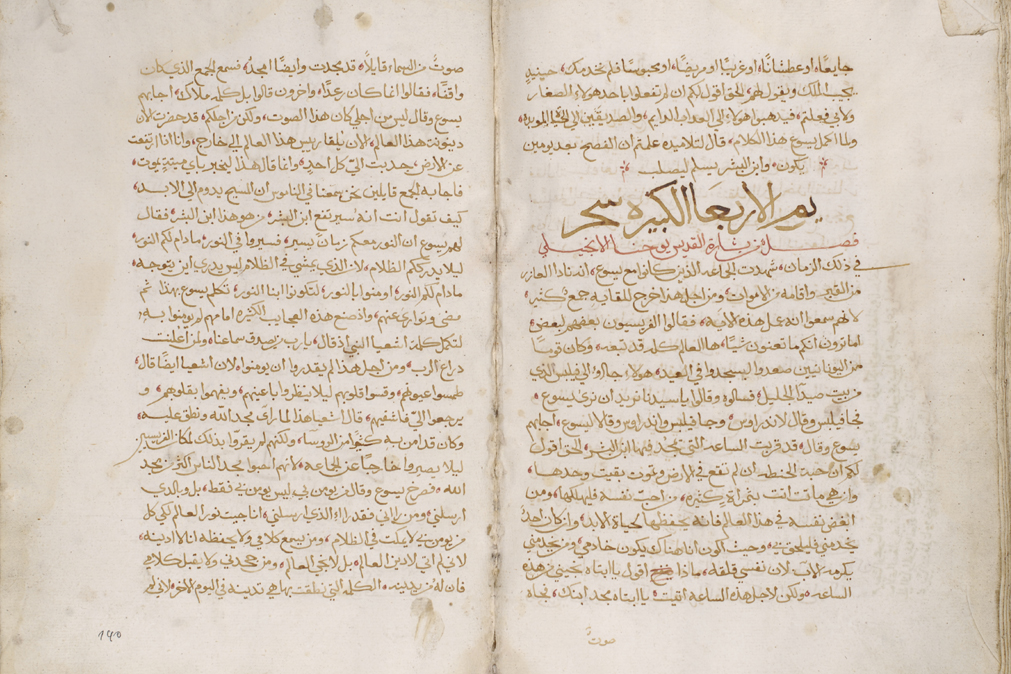 جايعًا، او عطشانًا، او غريبًا او مريضًا، او محبوسًا فلم نخدمك، حينيذٍ
يجيب الملك ويقول لهم، الحق اقول لكم ان لم تفعلوا باحد هولاء الصغار
ولا بي فعلتم، فيذهبوا هولاء الى العذاب الدايم، والصديقين الى الحياة الموبدة،
ولما اكمل يسوع هذا الكلام، قال لتلاميذه علمتم ان الفصح بعد يومين
يكون، وابن البشر يسلم ليصلب
يوم الاربعا الكبيرة سحر
فصل من بشارة القديس يوحنا الانجيلي
في ذلك الزمان، شهدت الجماعه الذين كانوا مع يسوع، اذ نادا العازر
من القبر، واقامه من الاموات، ومن اجل هذا خرج للقايه جمع كثير،
لانهم سمعوا انه عمل هذه الايه، فقالوا الفريسيون بعضهم لبعض،
اما ترون انكم ما تغنون شيا، ها العالم كله قد تبعه، وكان قومًا
من اليونانيين صعدوا ليسجدوا في العيد، هولاء جاوا الى فيلبس الذي
من بيت صيدا الجليل، فسالوه وقالوا يا سيدنا نريد ان نرى يسوع،
فجا فيلبس وقال لاندراوس، وجا فيلبس واندراوس وقالا ليسوع، اجابهم
يسوع وقال، قد قربت الساعه التي يتمجد فيها ابن البشر، الحق اقول
لكم ان حبة الحنطه، ان لم تقع في الارض وتموت بقيت وحدها،
وان هي ماتت اتت بثمراة كثيره، من احب نفسه فليهلكها، ومن
ابغض نفسه في هذا العالم فانه يحفظها لحياة الابد، وان كان احدٌ
يخدمني فليلحق بي، وحيث اكون انا هناك يكون خادمي، ومن يخدمني
يكرمه الاب، الان نفسي قلقه، ماذا اقول يا ابتاه نجيني من هذه
الساعه، ولكن لاجل هذه الساعه اتيت، يا ابتاه مجد ابنك، فجاه
صوتٌ
صوتٌ من السماء قايلاً، قد مجدت وايضًا امجدُ، فسمع الجمع الذي كان
واقفًا، فقالوا انما كان رعدًا، واخرون قالوا بل كلمه ملاك، اجابهم
يسوع وقال ليس من اجلي كان هذا الصوت، ولكن من اجلكم، قد حضرت الان
دينونة هذا العالم، الان يلقا رييس هذا العالم الى خارج، وانا اذا ارتفعت
عن الارض، جذبت اليّ كل احدٍ، وانما قال هذا ليخبر باي ميتةٍ يموت،
فاجابه الجمع قايلين نحن سمعنا في الناموس ان المسيح يدوم الى الابد،
كيف تقول انت انه سيرتفع ابن البشر، من هو هذا ابن البشر، فقال
لهم يسوع ان النور معكم زمانٌ يسير، فسيروا في النور، ما دام لكم النور،
ليلا يدرككم الظلام، لان الذي يمشي في الظلام ليس يدري اين يتوجه،
ما دام لكم النور، اومنوا بالنور، لتكونوا ابنا النور، تكلم يسوع بهذا ثم
مضى وتوارى عنهم، واذ صنع هذه العجايب الكثيره امامهم لم يومنوا به،
لتكمل كلمة اشعيا النبي اذ قال، يا رب من صدق سماعنا، ولمن اعلنت
دراع الرب، ومن اجل هذا لم يقدروا ان يومنوا، لان اشعيا ايضًا قال،
طمسوا عيونهم، وقسوا قلوبهم ليلا ينظروا باعينهم، ويفهموا بقلوبهم، و
يرجعوا اليّ فاشفيهم، قال اشعيا هذا لما راى مجد الله ونطق عليه،
وكان قد امن به كثيرًا من الروسا، ولكنهم لم يقروا بذلك لمكان الفريسيين
ليلا يصيروا خارجًا عن الجماعه، لانهم احبوا مجد الناس اكثر من مجد
الله، فصرخ يسوع وقال من يومن بي ليس يومن بي فقط، بل وبالذي
ارسلني، ومن راني فقد راء الذي ارسلني، انا جيت نور العالم لكي كل
من يومن بي لا يمكث في الظلام، ومن يسمع كلامي ولا يحفظه انا لا ادينه،
لاني لم اتي لادين العالم، بل لاحيي العالم، ومن جحدني ولا يقبل كلامي
فان له من يدينه، الكلمه التي نطقت بها هي تدينه في اليوم الاخر، لاني لم
١٤٥